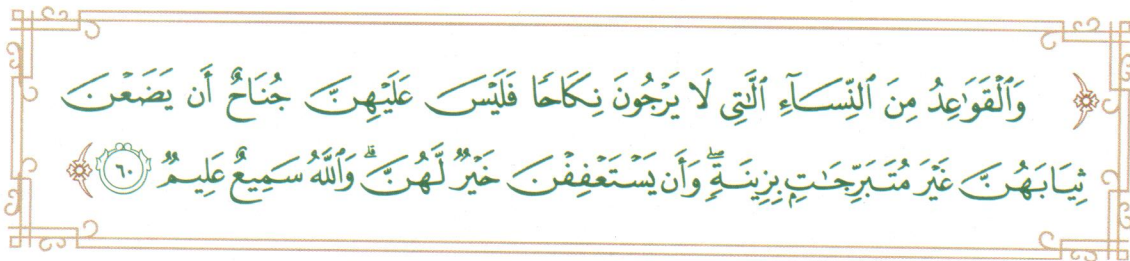 وَٱلْقَوَٰعِدُ مِنَ ٱلنِّسَآءِ ٱلَّٰتِى لَا يَرْجُونَ نِكَاحًا فَلَيْسَ عَلَيْهِنَّ جُنَاحٌ أَن يَضَعْنَ
ثِيَابَهُنَّ غَيْرَ مُتَبَرِّجَٰتٍۭ بِزِينَةٍۖ وَأَن يَسْتَعْفِفْنَ خَيْرٌ لَّهُنَّۗ وَٱللَّهُ سَمِيعٌ عَلِيمٌ ٦٠